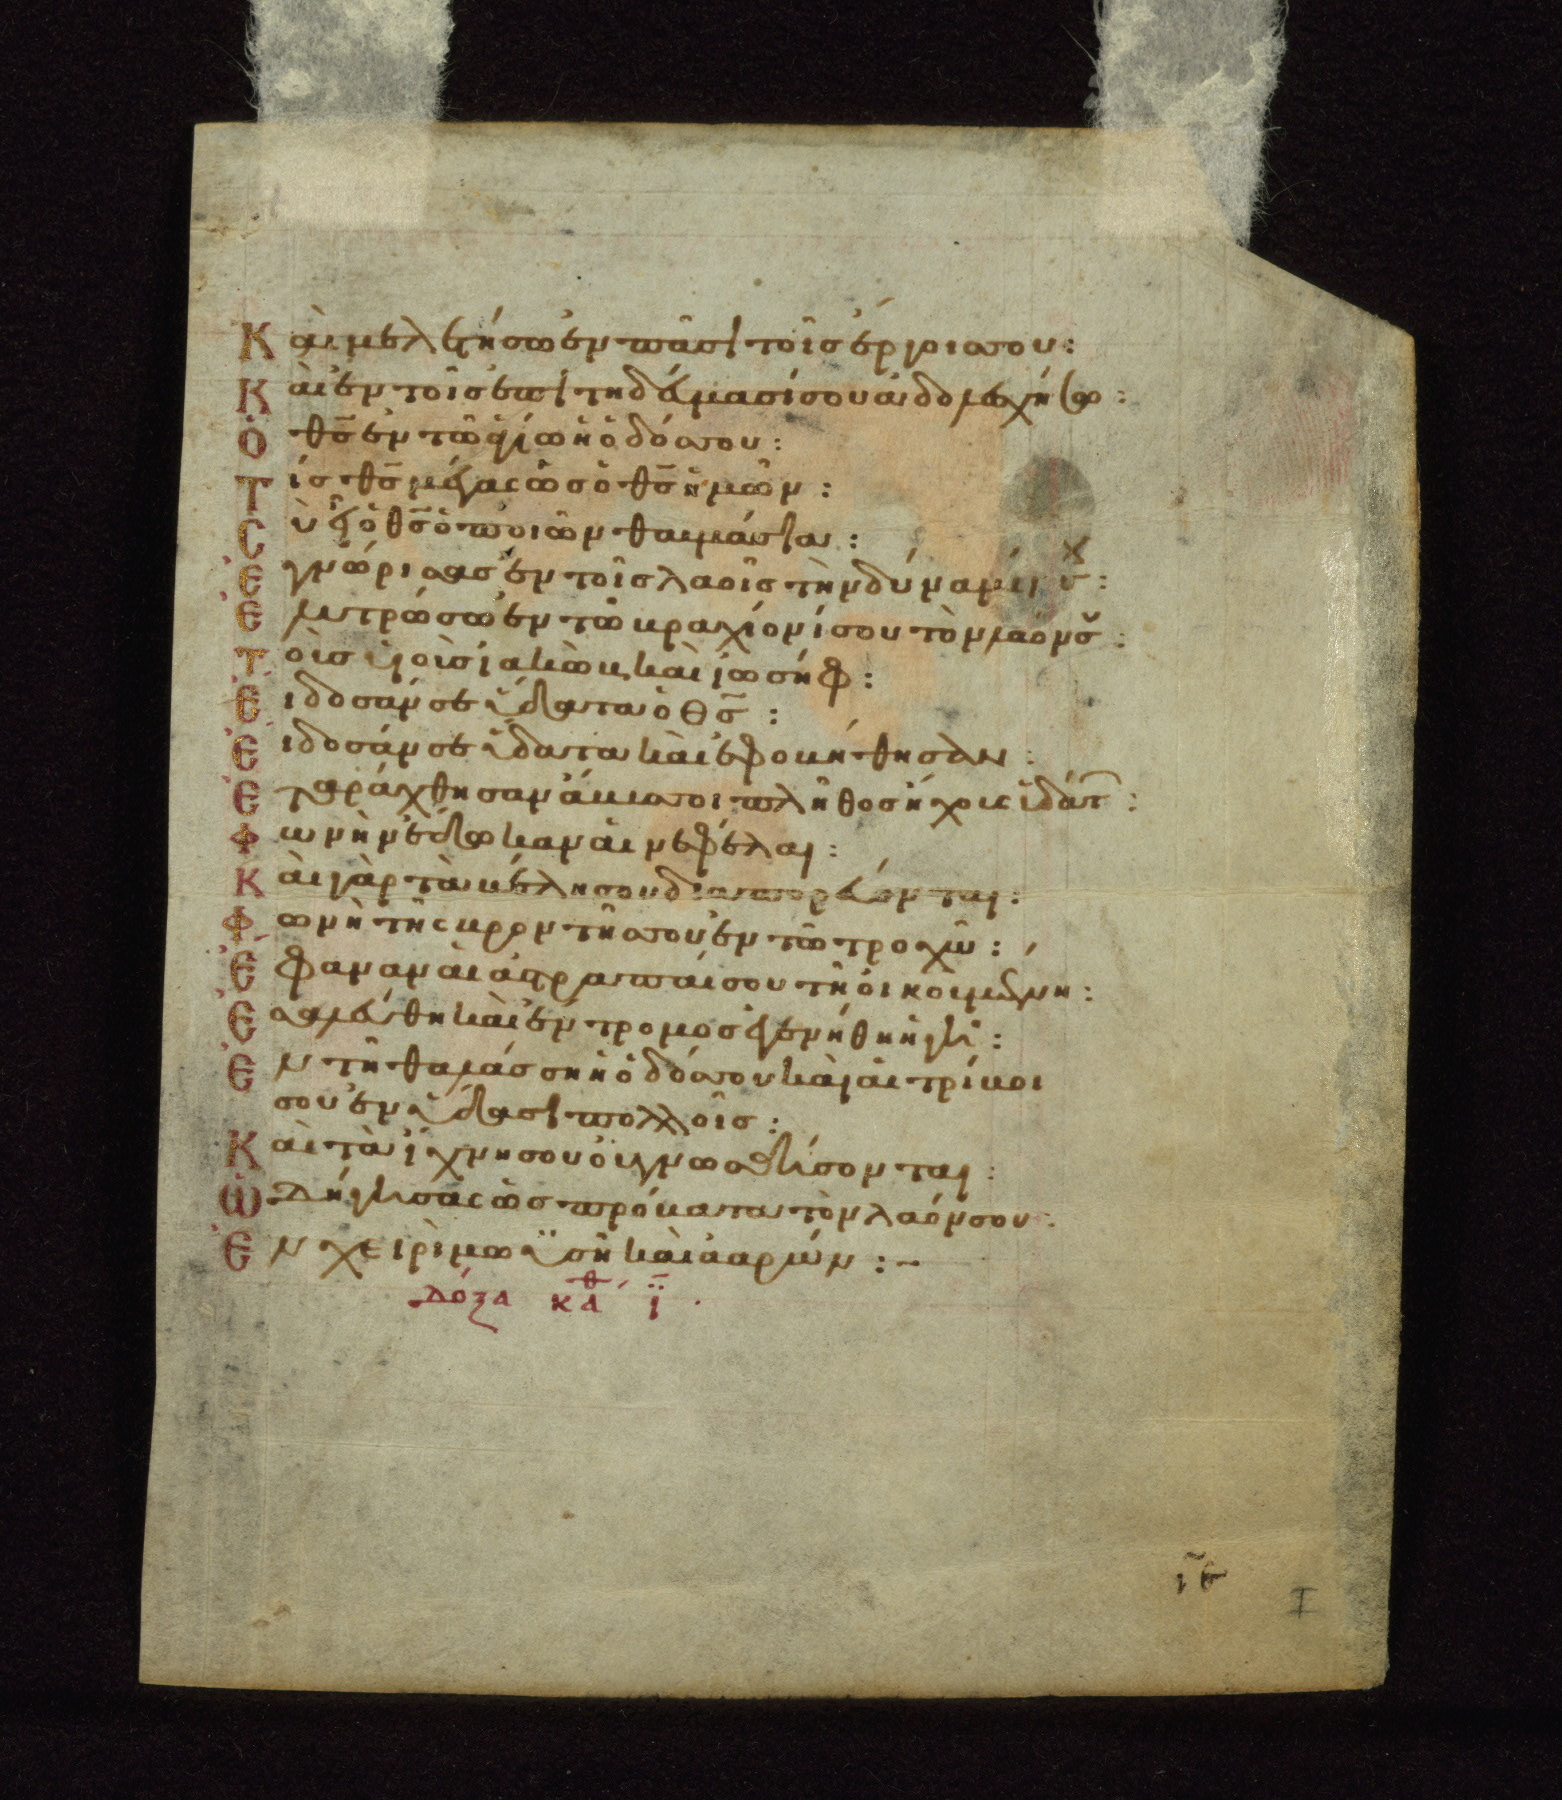 Καὶ μελετήσω ἐν πᾶσι τοῖς ἔργοις σου:
Καὶ ἐν τοῖς ἐπιτηδεύμασί σου ἀδολεσχήσω:
Ὁ θ̅ς̅ ἐν τῶ ἁγίω ἡ ὁδός σου:
Τίς θ̅ς̅ μέγας ὡς ὁ θ̅ς̅ ἡμῶν:
Σὺ εἶ ὁ θ̅ς̅ ὁ ποιῶν θαυμάσια:
Ἐγνώρισας ἐν τοῖς λαοῖς τὴν δύναμίν σ̅:
Ἐλυτρώσω ἐν τῶ βραχίονί σου τὸν λαόν σ̅:
Τοὺς υἱοὺς ἰακὼβ καὶ ἰωσήφ:
Εἴδοσάν σε ὕδατα ὁ θ̅ς̅:
Εἴδοσάν σε ὕδατα καὶ ἐφοβήθησαν:
Ἐταράχθησαν ἄβυσσοι πλῆθος ἤχους ὑδάτ:
Φωνὴν ἔδωκαν αἱ νεφέλαι:
Καὶ γὰρ τὰ βέλη σου διαπορεύονται:
Φωνὴ τῆς βροντῆς σου ἐν τῶ τροχῶ:
Ἔφαναν αἱ ἀστραπαί σου τῆ οἰκουμένη:
Ἐσαλεύθη καὶ ἔντρομος ἐγενήθη ἡ γῆ:
Ἐν τῆ θαλάσση ἡ ὁδός σου καὶ αἱ τρίβοι
σου ἐν ὕδασι πολλοῖς:
Καὶ τὰ ἴχνη σου οὐ γνωσθήσονται:
Ὡδήγησας ὡς πρόβατα τὸν λαόν σου:
Ἐν χειρὶ μωϋσῆ καὶ ἀαρών:~
Δόξα κ̅α̅θ ϊ̅
ι̅ε̅
I